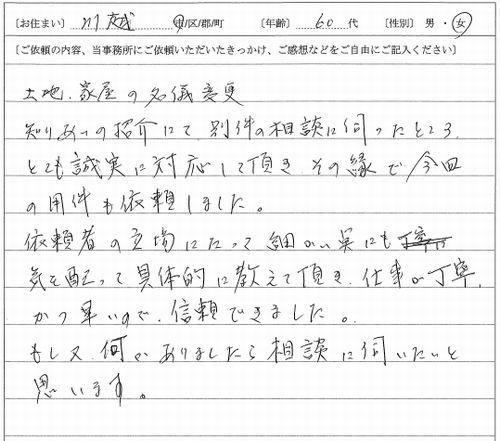 ［お住まい］ 川越 市/区/郡/町 ［年齢］ 60 代 ［性別］ 男 ・ 女
［ご依頼の内容、当事務所にご依頼いただいたきっかけ、ご感想などをご自由にご記入ください］
土地、家屋の名儀変更
知りあいの紹介にて別件の相談に伺ったところ、
とても誠実に対応して頂き、その縁で今回
の用件も依頼しました。
依頼者の立場にたって細かい実にも
気を配って具体的に教えて頂き、仕事が丁寧、
かつ早いので、信頼できました。
もし又、何かありましたら相談に伺いたいと
思います。